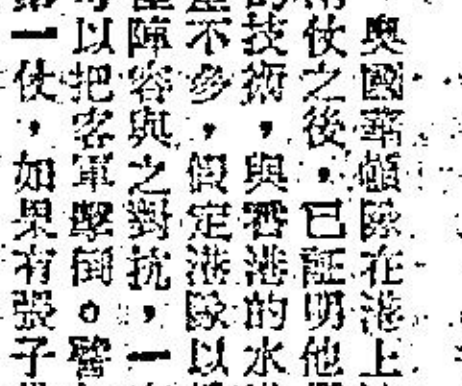 奧國華頓隊在港上
仗之後，已証明他
技術，與香港的水
不多，假定港隊以
陣容與之對抗，一
以把客軍擊倒。譬
一仗，如果有張子